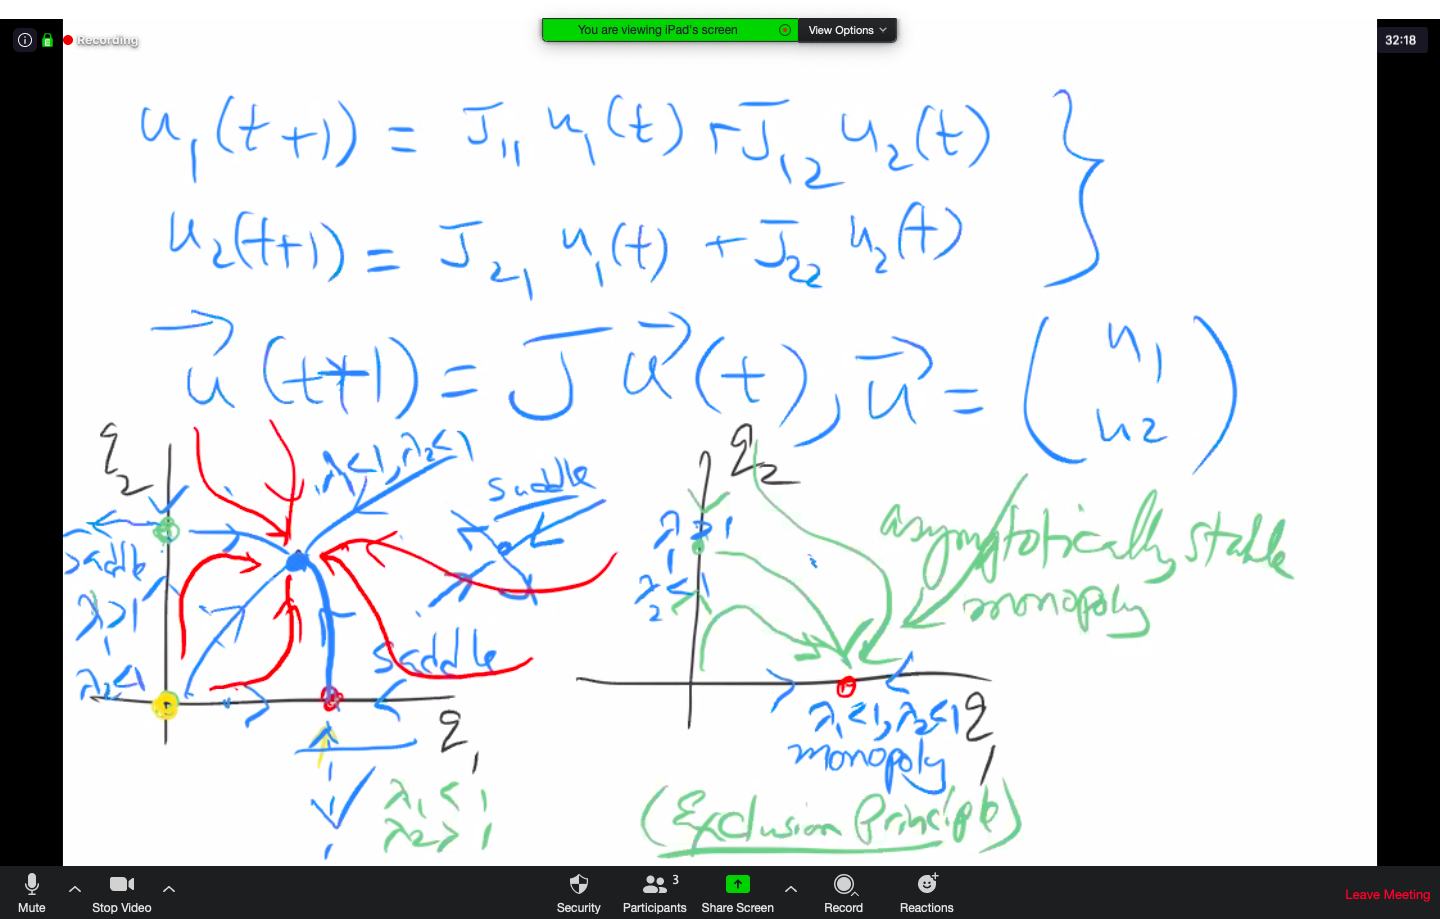 You are viewing iPad's screen View Options
Recording
32:18
u₁(t+1) = J₁₁ u₁(t) + J₁₂ u₂(t)
u₂(t+1) = J₂₁ u₁(t) + J₂₂ u₂(t)
u⃗(t+1) = J u⃗(t), u⃗ = (u₁ u₂)
q₂
λ₁<1, λ₂<1
saddle
saddle
λ₁>1
λ₂<1
saddle
q₁
λ₁ < 1
λ₂ > 1
q₂
λ₁ > 1
λ₂ < 1
asymptotically stable
monopoly
λ₁<1, λ₂<1
q₁
monopoly
(Exclusion Principle)
Mute
Stop Video
Security
Participants 3
Share Screen
Record
Reactions
Leave Meeting